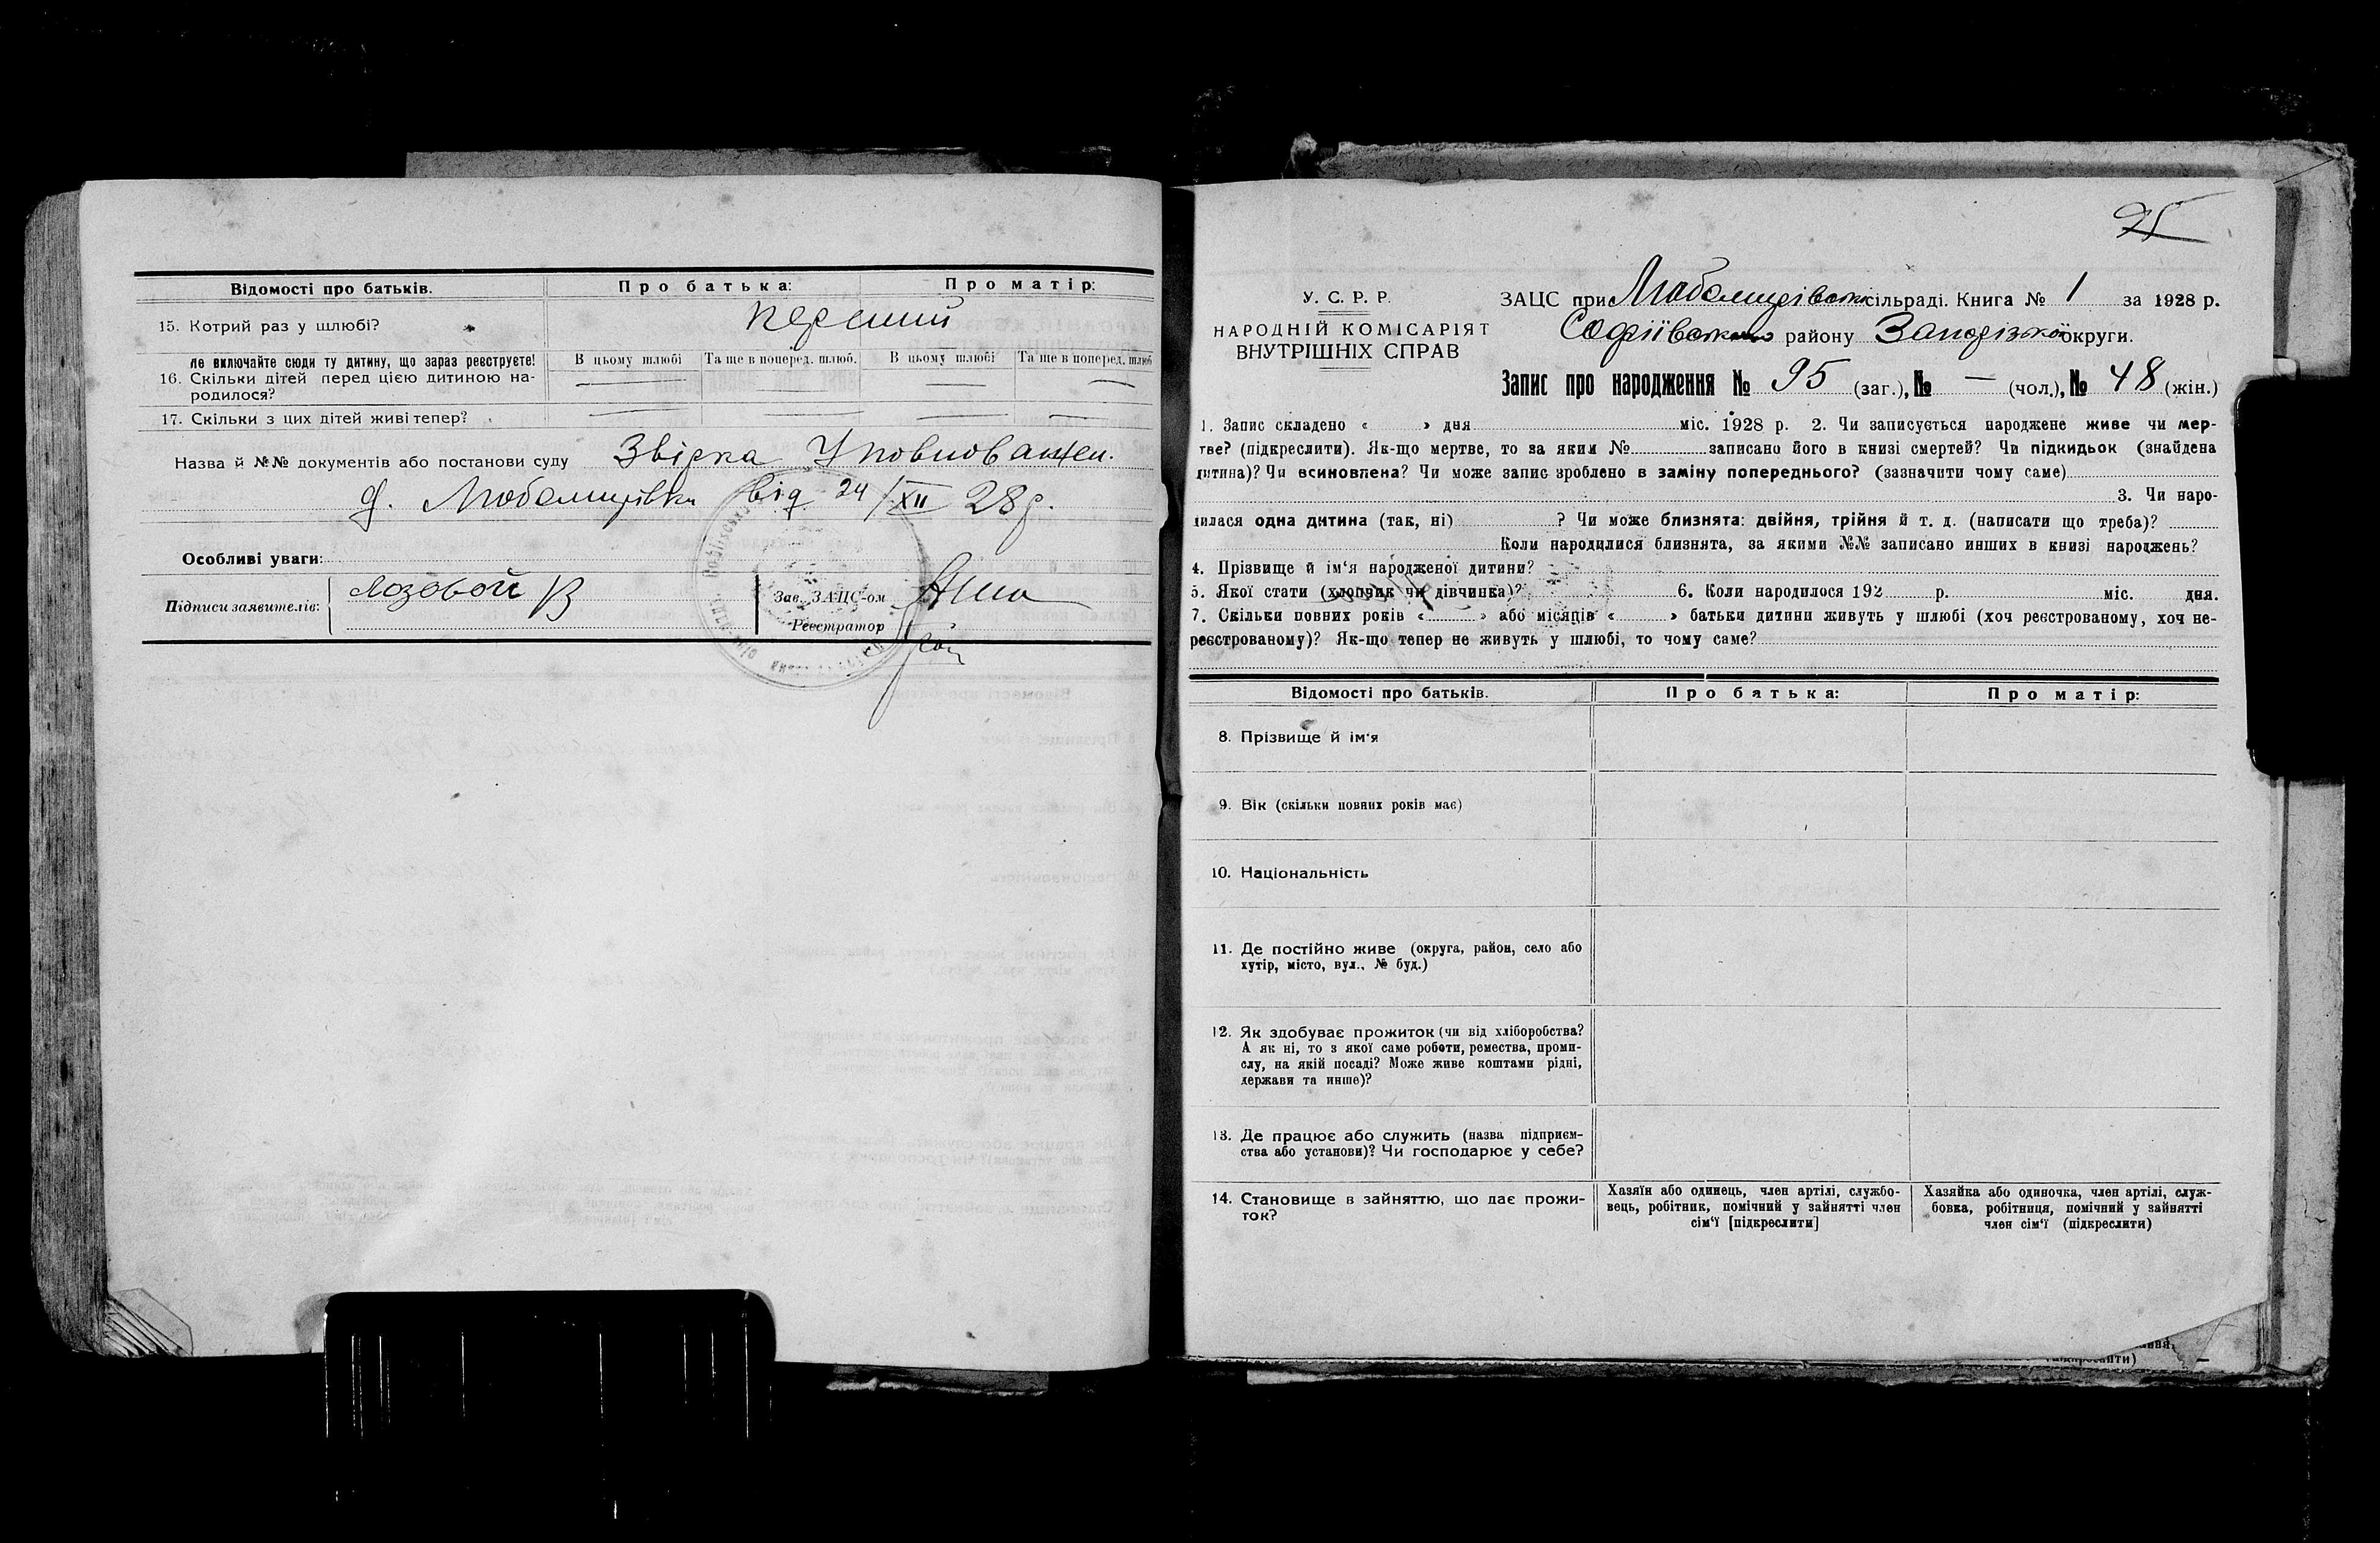 Відомості про батьків.
Про батька:
Про матір:
15. Котрий раз у шлюбі?
перший
Не включайте сюди ту дитину, що зараз реєструєте!
16. Скільки дітей перед цією дитиною на-
родилося?
В цьому шлюбі
Та ще в поперед. шлюб.
В цьому шлюбі
Та ще в поперед. шлюб
17. Скільки з цих дітей живі тепер?
Назва й №№ документів або постанови суду Звірка Уповноважен.
від 24/XII 28 р.
Особливі уваги:
Підписи заявителів:
Лозовой В
Зав. ЗАЦС-ом
Реєстратор
95
У. С. Р. Р.
НАРОДНІЙ КОМІСАРІЯТ
ВНУТРІШНІХ СПРАВ
ЗАЦС при сільраді. Книга № 1 за 1928 р.
Софіївського району Запорізької округи.
Запис про народження № 95 (заг.), № — (чол.), № 48 (жін.)
1. Запис складено « » дня міс. 1928 р. 2. Чи записується народжене живе чи мер-
тве? (підкреслити). Як-що мертве, то за яким № записано його в книзі смертей? Чи підкидьок (знайдена
дитина)? Чи всиновлена? Чи може запис зроблено в заміну попереднього? (зазначити чому саме)
3. Чи наро-
дилася одна дитина (так, ні) ? Чи може близнята: двійня, трійня й т. д. (написати що треба)?
Коли народилися близнята, за якими №№ записано инших в книзі народжень?
4. Прізвище й ім'я народженої дитини?
5. Якої стати (хлопчик чи дівчинка)? 6. Коли народилося 192 р. міс. дня.
7. Скільки повних років « » або місяців « » батьки дитини живуть у шлюбі (хоч реєстрованому, хоч не-
реєстрованому)? Як-що тепер не живуть у шлюбі, то чому саме?
Відомості про батьків.
Про батька:
Про матір:
8. Прізвище й ім'я
9. Вік (скільки повних років має)
10. Національність
11. Де постійно живе (округа, район, село або
хутір, місто, вул., № буд.)
12. Як здобуває прожиток (чи від хліборобства?
А як ні, то з якої саме роботи, ремества, проми-
слу, на якій посаді? Може живе коштами рідні,
держави та инше)?
13. Де працює або служить (назва підприєм-
ства або установи)? Чи господарює у себе?
14. Становище в зайняттю, що дає прожи-
ток?
Хазяїн або одинець, член артілі, службо-
вець, робітник, помічний у зайнятті член
сім'ї [підкреслити]
Хазяйка або одиночка, член артілі, служ-
бовка, робітниця, помічний у зайнятті
член сім'ї (підкреслити)